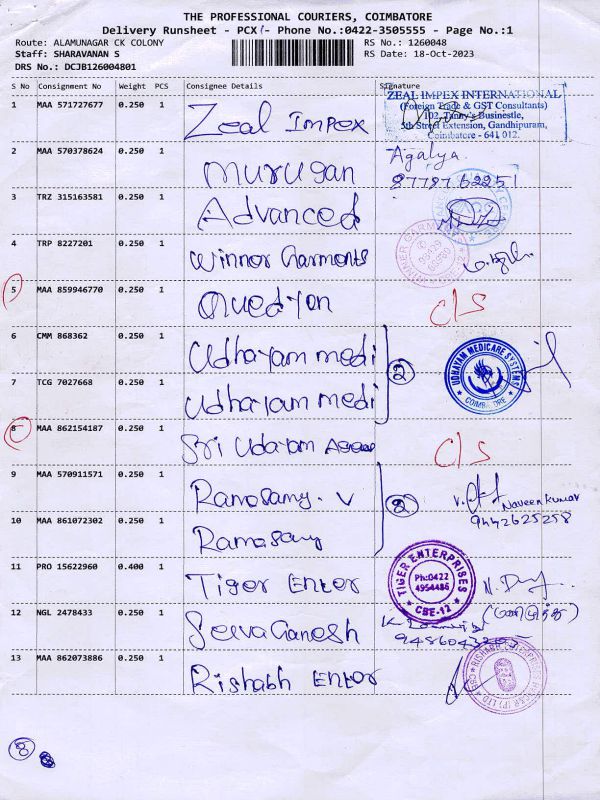 THE PROFESSIONAL COURIERS, COIMBATORE
Delivery Runsheet - PCX - Phone No.:0422-3505555 - Page No.:1
Route: ALAMUNAGAR CK COLONY RS No.: 1260048
Staff: SHARAVANAN S RS Date: 18-Oct-2023
DRS No.: DCJB126004801
S No Consignment No Weight PCS Consignee Details Signature
1 MAA 571727677 0.250 1 Zeal Impex
ZEAL IMPEX INTERNATIONAL
(Foreign Trade & GST Consultants)
102, Businestle,
5th Street Extension, Gandhipuram,
Coimbatore - 641 012.
2 MAA 570378624 0.250 1 Murugan Agalya.
8778762251
3 TRZ 315163581 0.250 1 Advanced
4 TRP 8227201 0.250 1 Winner Garments
5 MAA 859946770 0.250 1 C/S
6 CMM 868362 0.250 1 Udhayam medi
UDHAYAM MEDICARE SYSTEMS
7 TCG 7027668 0.250 1 Udhayam medi
8 MAA 862154187 0.250 1 Sri Udayam C/S
9 MAA 570911571 0.250 1 Ramasamy. V Naveen kumar
9442625258
10 MAA 861072302 0.250 1 Ramasamy
11 PRO 15622960 0.400 1 Tiger Enter
TIGER ENTERPRISES
Ph:0422
4954486
CBE-12
12 NGL 2478433 0.250 1 Seeva Ganesh
13 MAA 862073886 0.250 1 Rishabh Enter
8